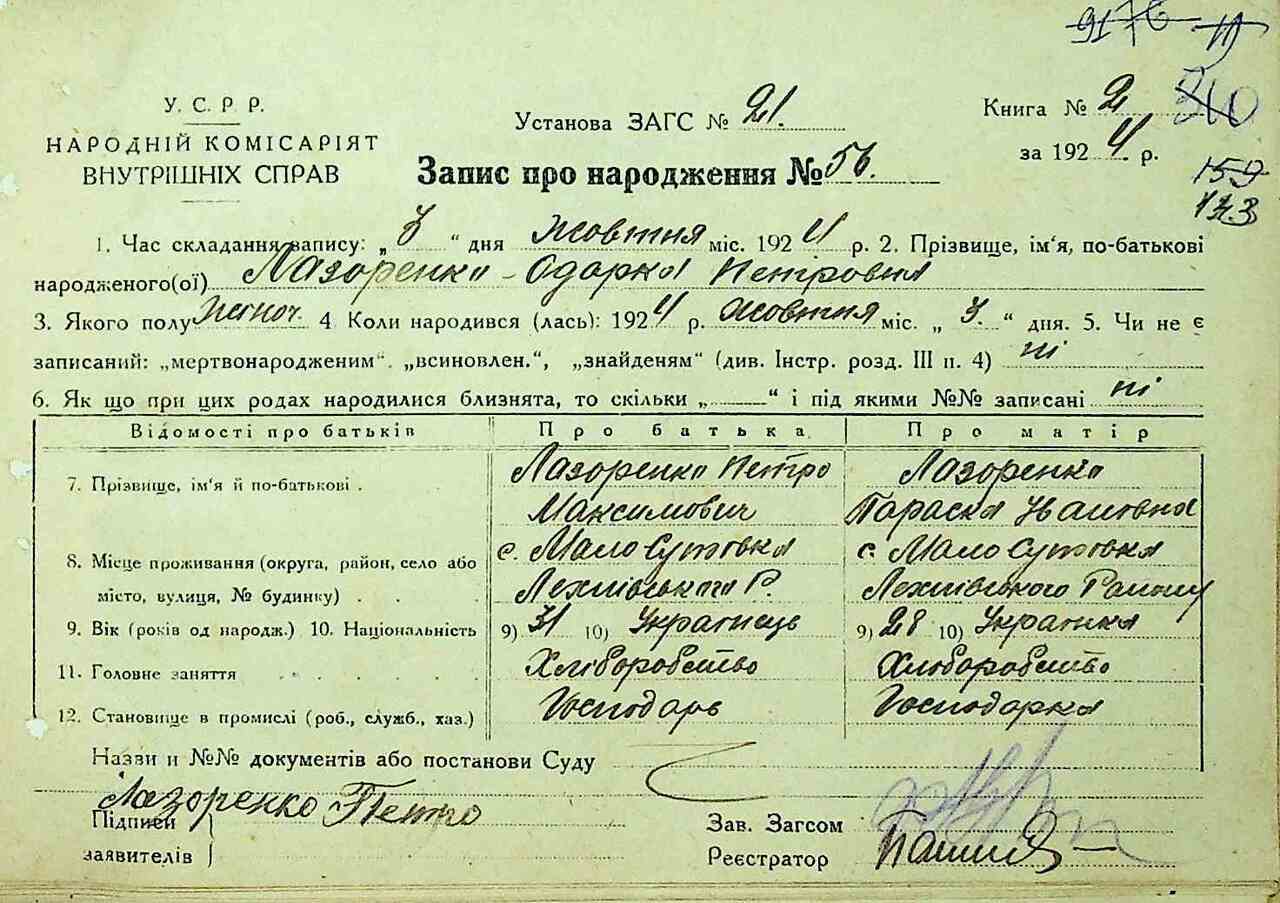 У. С. Р Р.
НАРОДНІЙ КОМІСАРІЯТ
ВНУТРІШНІХ СПРАВ
Установа ЗАГС № 21.
Книга № 2
за 1924 р.
Запис про народження № 56.
159
143
1. Час складання запису: „3“ дня жовтня міс. 1924 р. 2. Прізвище, ім'я, по-батькові
народженого(ої) Лазоренко - Одарка Петровна
3. Якого полу жіноч. 4 Коли народився (лась): 1924 р. жовтня міс. „3.“ дня. 5. Чи не є
записаний: „мертвонародженим“. „всиновлен.“, „знайденям“ (див. Інстр. розд. III п. 4) ні
6. Як що при цих родах народилися близнята, то скільки „ “ і під якими №№ записані ні
Відомості про батьків Про батька Про матір
7. Прізвище, ім'я й по-батькові . Лазоренко Петро Максимович Лазоренко Параска Івановна
8. Місце проживання (округа, район, село або с. МалоСутовка с. МалоСутовка
місто, вулиця, № будинку) . Р. Району
9. Вік (років од народж.) 10. Національність 9) 31 10) Українець 9) 28 10) Українка
11. Головне заняття Хліборобство Хліборобство
12. Становище в промислі (роб., служб., хаз.) Господарь Господарка
Назви и №№ документів або постанови Суду
Лазоренко Петро
Підписи
заявителів
Зав. Загсом
Реєстратор